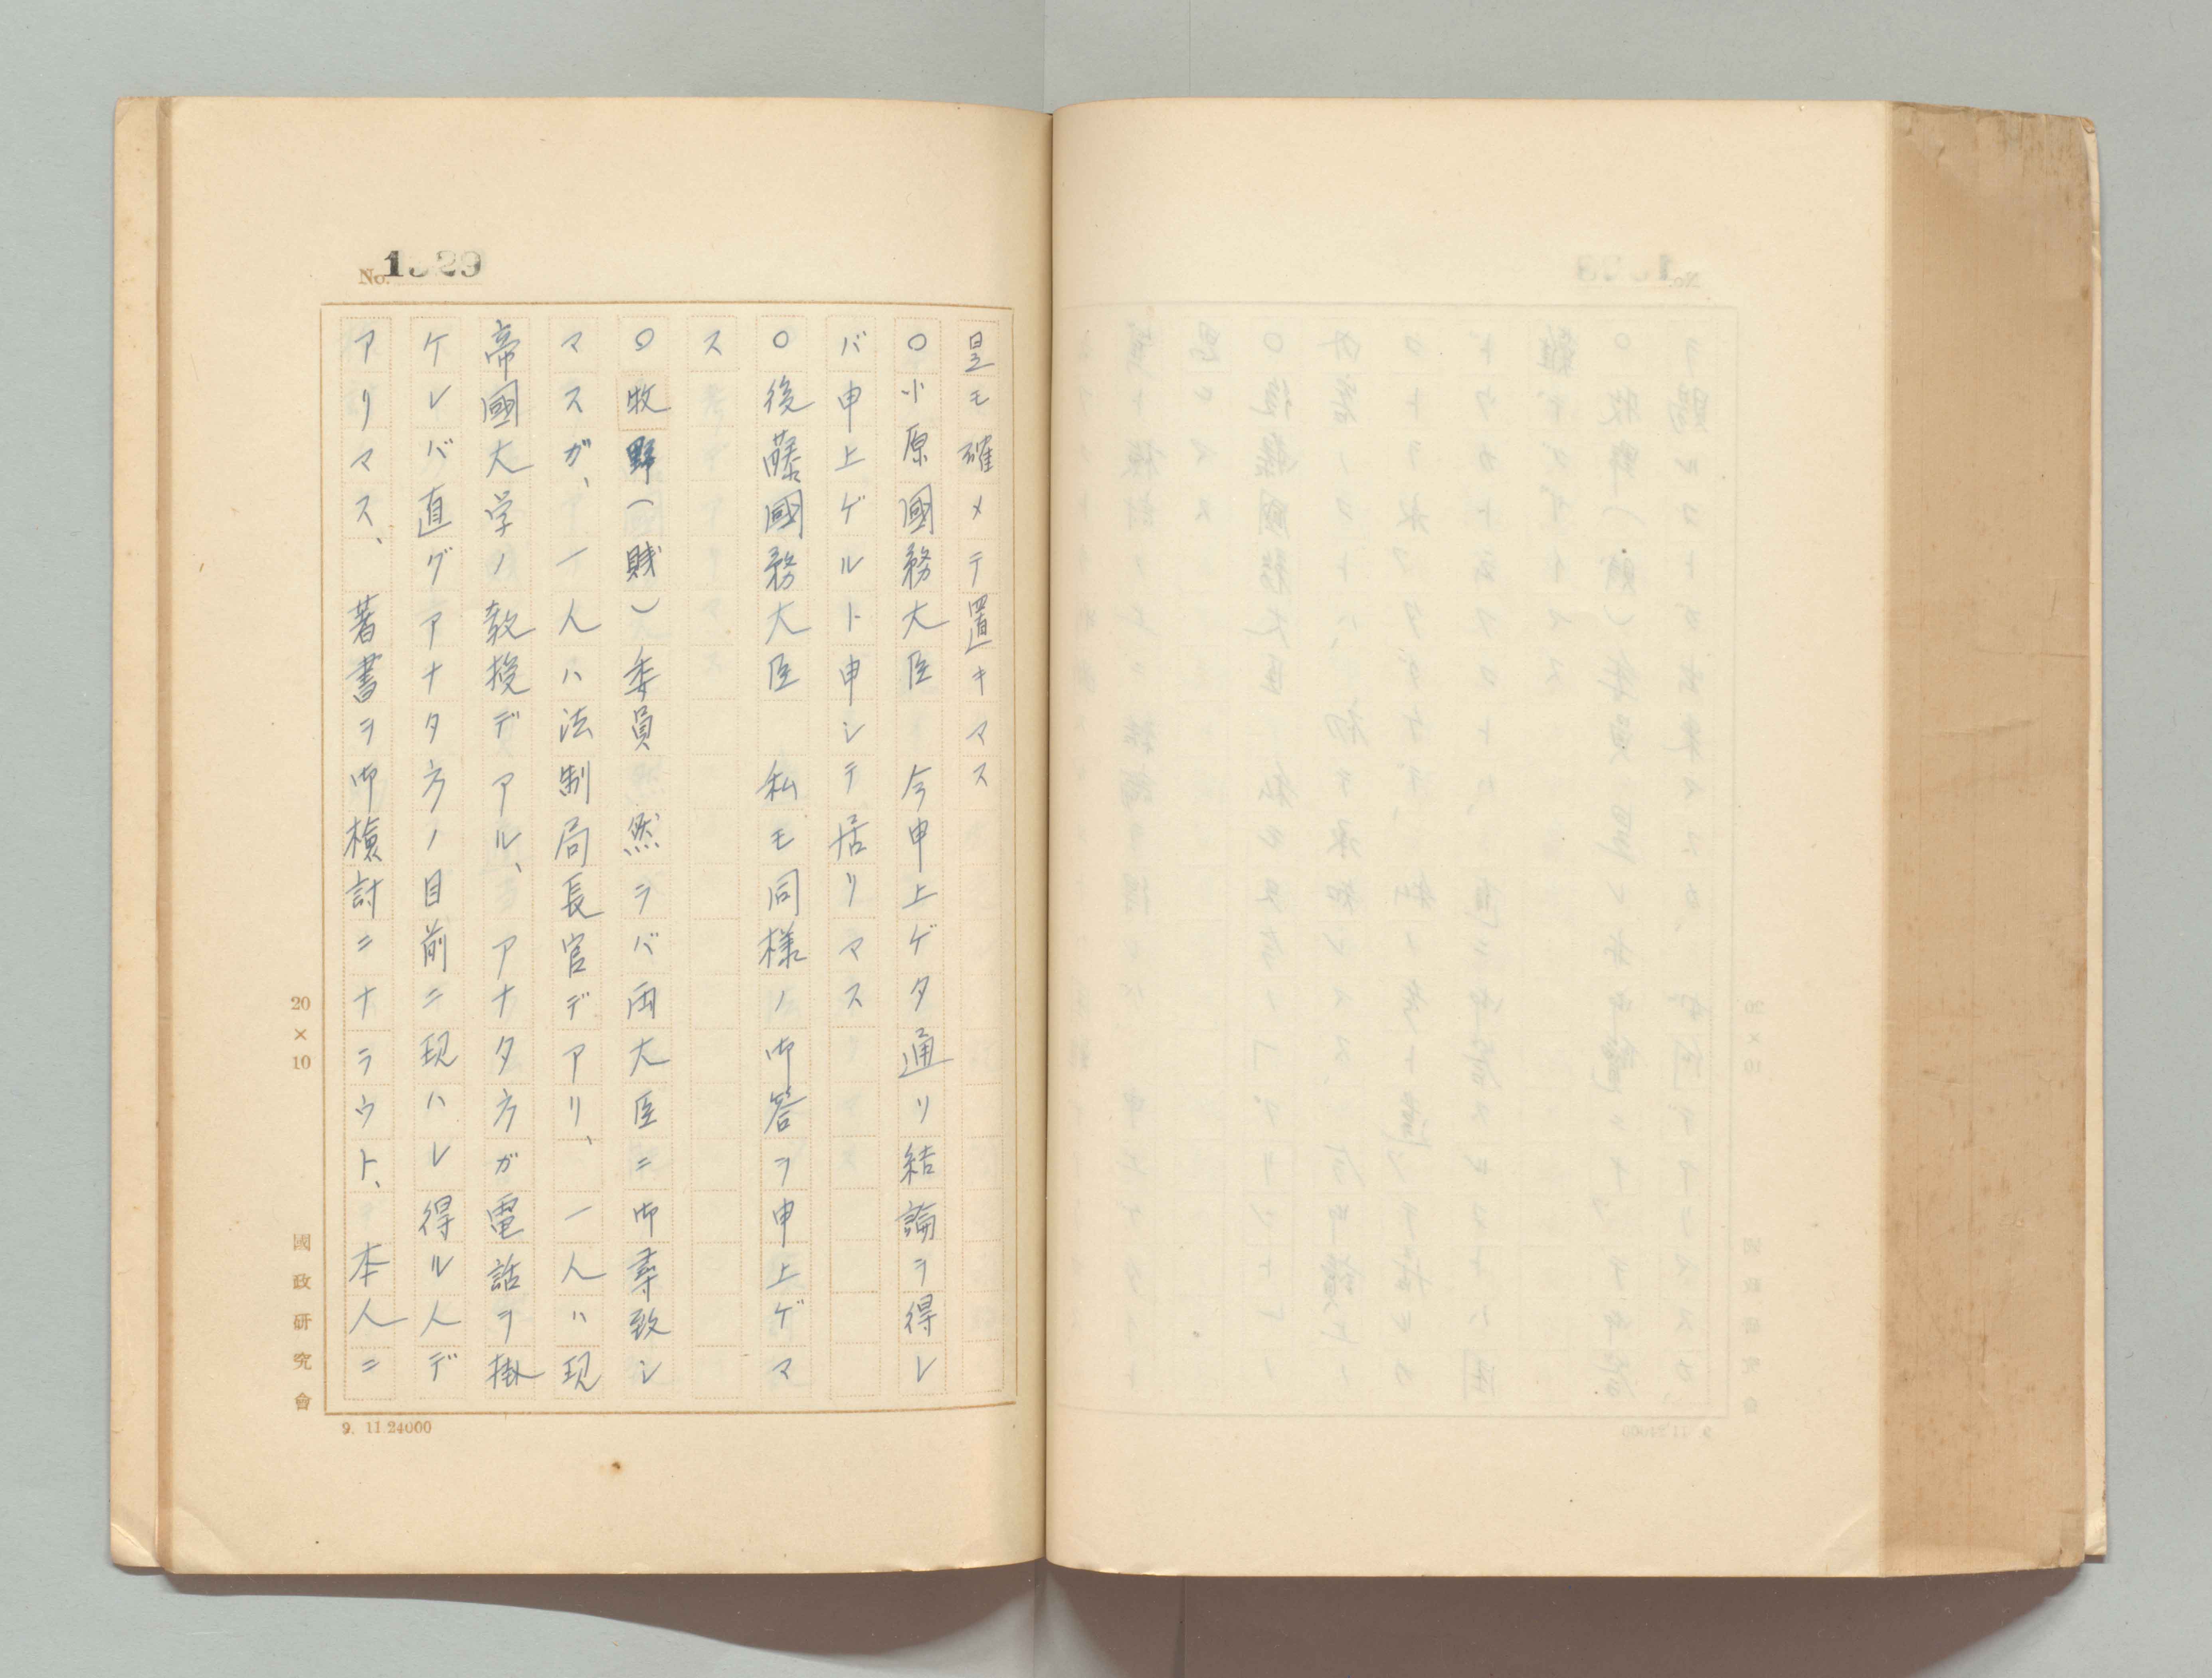 No. 1329
是モ確メテ置キマス
○小原國務大臣　今申上ゲタ通リ結論ヲ得レ
バ申上ゲルト申シテ居リマス
○後藤國務大臣　私モ同様ノ御答ヲ申上ゲマ
ス
○牧野(賤)委員　然ラバ両大臣ニ御尋致シ
マスガ、一人ハ法制局長官デアリ、一人ハ現
帝國大学ノ教授デアル、アナタ方ガ電話ヲ掛
ケレバ直グアナタ方ノ目前ニ現ハレ得ル人デ
アリマス、著書ヲ御検討ニナラウト、本人ニ
20×10
國政研究會
9. 11.24000